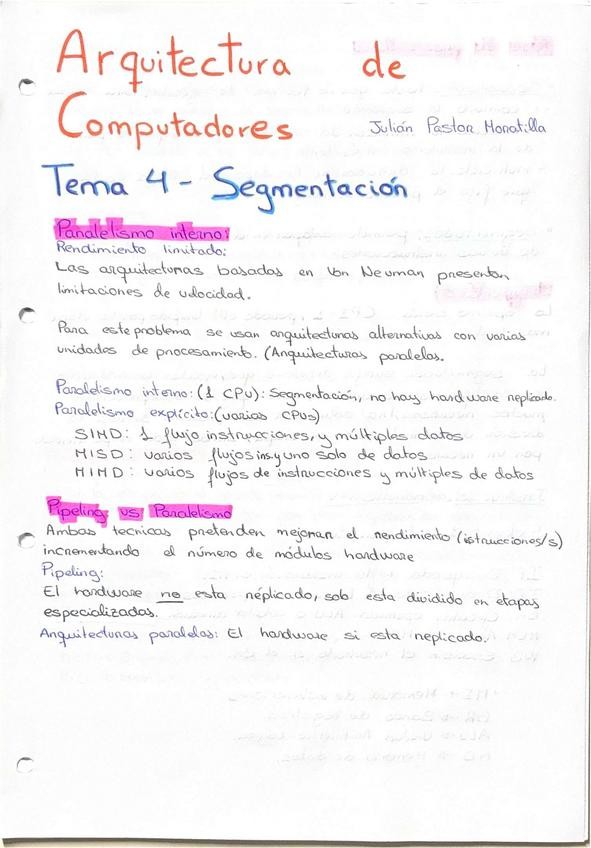 Arquitectura de
Computadores Julián Pastor Monatilla
Tema 4 - Segmentación
Paralelismo interno:
Rendimiento limitado:
Las arquitecturas basadas en Von Neuman presentan
limitaciones de velocidad.
Para este problema se usan arquitecturas alternativas con varias
unidades de procesamiento. (Arquitecturas paralelas.
Paralelismo interno: (1 CPU): Segmentación, no hay hardware replicado.
Paralelismo explícito: (varias CPUs)
SIMD: 1 flujo instrucciones, y múltiples datos
MISD: varios flujos ins. y uno solo de datos
MIMD: varios flujos de instrucciones y múltiples de datos
Pipeling vs Paralelismo
Ambas tecnicas pretenden mejorar el rendimiento (istrucciones/s)
incrementando el número de módulos hardware
Pipeling:
El hardware no esta réplicado, solo esta dividido en etapas
especializadas.
Arquitecturas paralelas: El hardware si esta replicado.